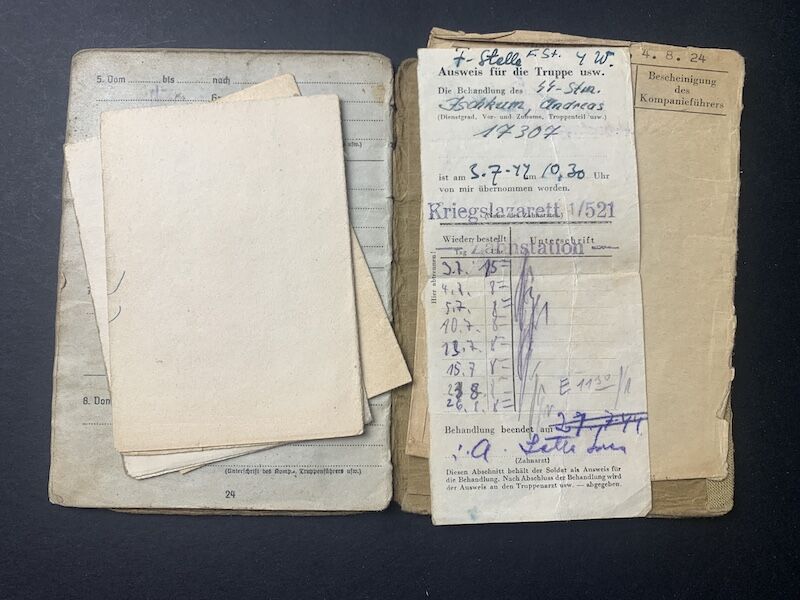 5. Vom ........ bis ........ nach ........
6.
usw.)
8. Von
(Unterschrift des Komp.-, Truppenführers usw.)
24
F-Stelle
Ausweis für die Truppe usw.
Die Behandlung des
Andreas
(Dienstgrad, Vor- und Zuname, Truppenteil usw.)
17307
ist am 3.7.44 um 10,30 Uhr
von mir übernommen worden.
Kriegslazarett 1/521
(Name des Zahnarztes)
Zahnstation
Wieder bestellt
Unterschrift
Tag
Uhr
Hier abtrennen!
3.7. 15=
4.7. 8=
5.7. 8=
10.7. 8=
13.7. 8=
15.7 8=
8. 8=
26.8. 8=
E 11³⁰
Behandlung beendet am 27.7.44
i. A.
(Zahnarzt)
Diesen Abschnitt behält der Soldat als Ausweis für
die Behandlung. Nach Abschluss der Behandlung wird
der Ausweis an den Truppenarzt usw. — abgegeben.
4. 8. 24
Bescheinigung
des
Kompanieführers